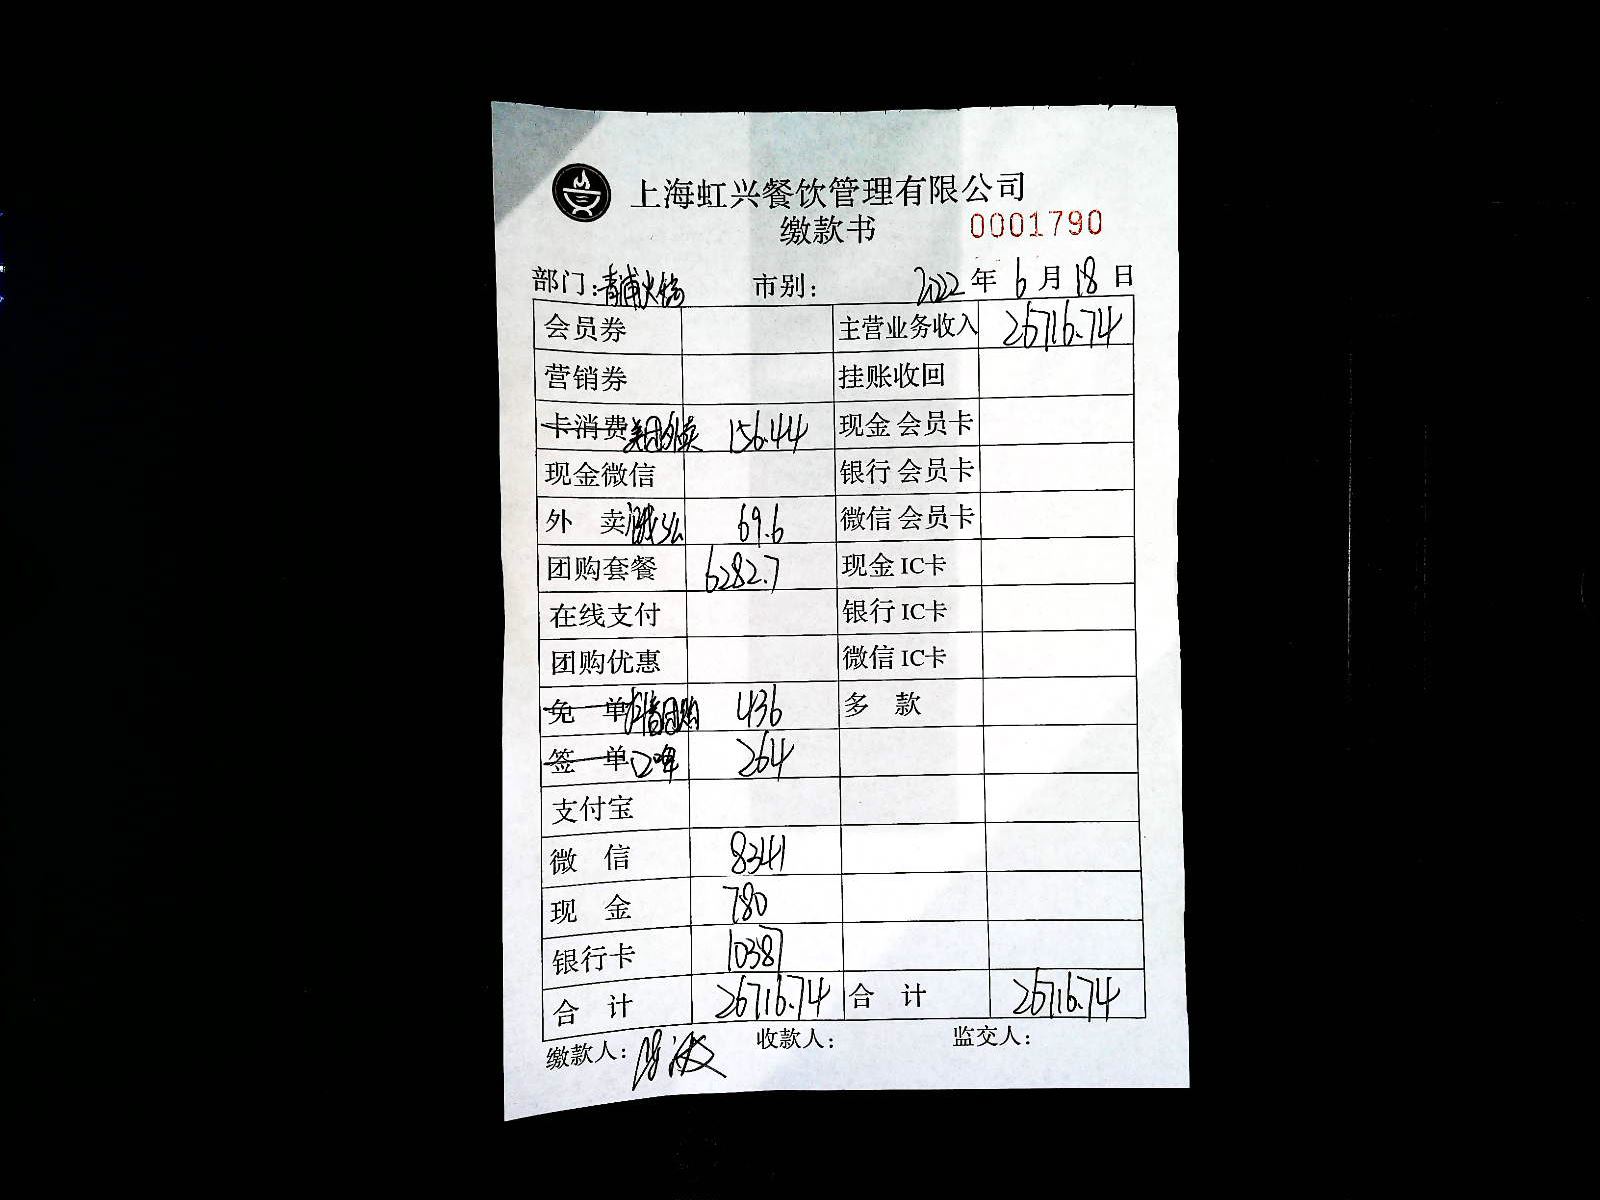 上海虹兴餐饮管理有限公司
缴款书 0001790
部门：青浦火锅 市别： 2022 年 6 月 18 日
会员券 主营业务收入 26716.74
营销券 挂账收回
卡消费 美团外卖 156.44 现金会员卡
现金微信 银行会员卡
外 卖 饿么 69.6 微信会员卡
团购套餐 6282.7 现金IC卡
在线支付 银行IC卡
团购优惠 微信IC卡
免 单 抖音团购 436 多 款
签 单 口啤 264
支付宝
微 信 8341
现 金 780
银行卡 10387
合 计 26716.74 合 计 26716.74
缴款人： 收款人： 监交人：